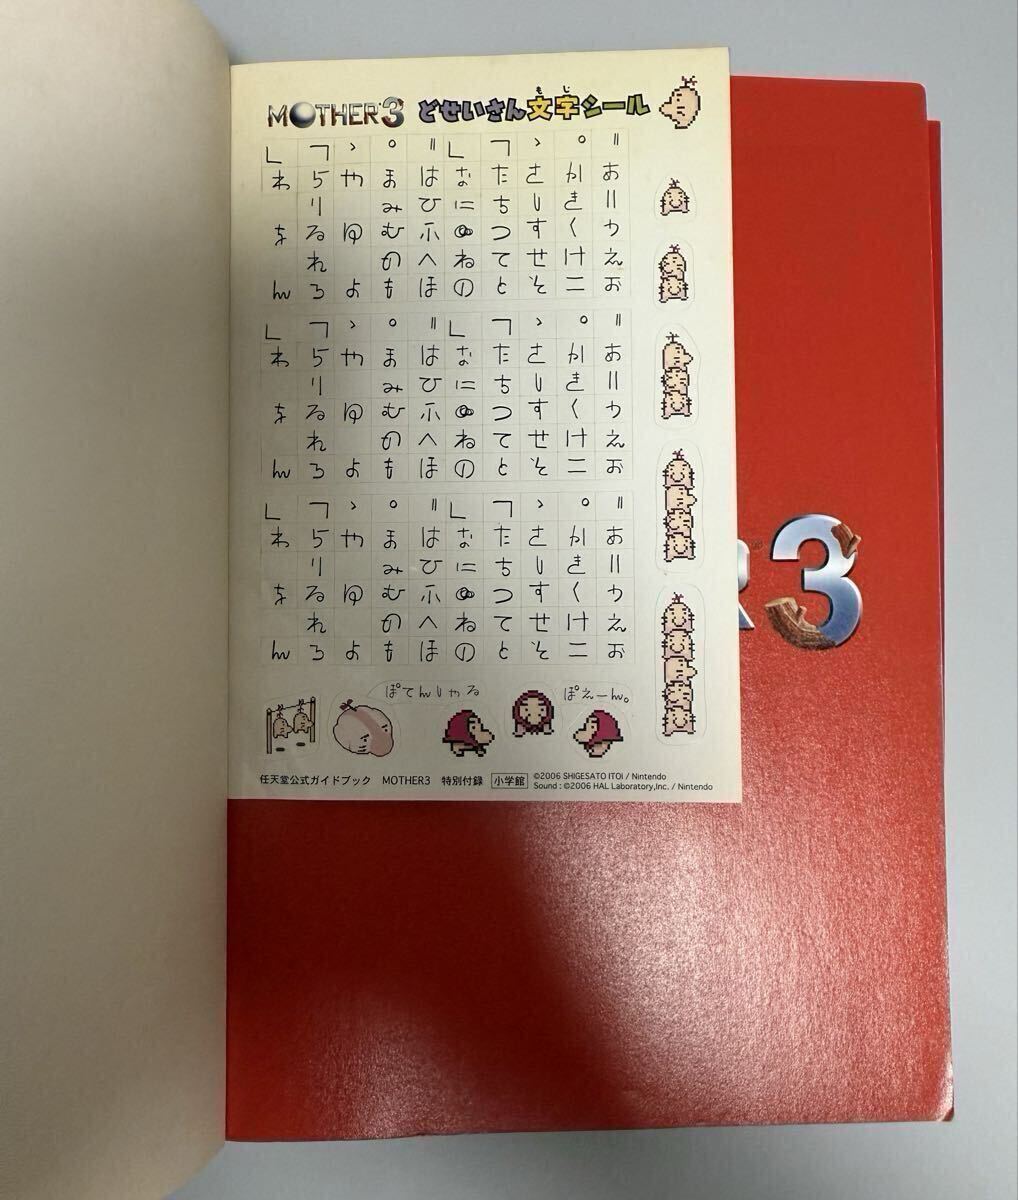 MOTHER3 どせいさん文字シール
もじ
」 「 、 ゜ ゛ 」 「 、 ゜ ゛
わ ら や ま は な た さ か あ
り み ひ に ち し き い
を る ゆ む ふ ぬ つ す く う
れ め へ ね て せ け え
ん ろ よ も ほ の と そ こ お
」 「 、 ゜ ゛ 」 「 、 ゜ ゛
わ ら や ま は な た さ か あ
り み ひ に ち し き い
を る ゆ む ふ ぬ つ す く う
れ め へ ね て せ け え
ん ろ よ も ほ の と そ こ お
」 「 、 ゜ ゛ 」 「 、 ゜ ゛
わ ら や ま は な た さ か あ
り み ひ に ち し き い
を る ゆ む ふ ぬ つ す く う
れ め へ ね て せ け え
ん ろ よ も ほ の と そ こ お
ぽてんしゃる
ぽえーん。
任天堂公式ガイドブック MOTHER3 特別付録 小学館
©2006 SHIGESATO ITOI / Nintendo
Sound : ©2006 HAL Laboratory,Inc. / Nintendo
R3